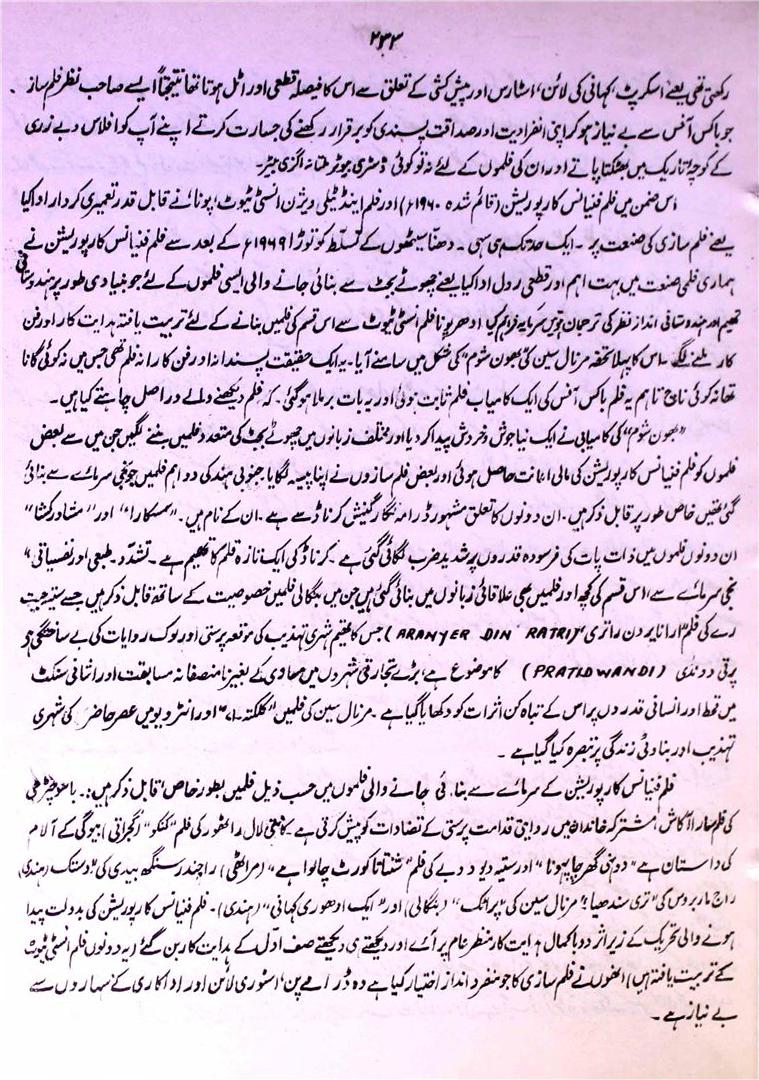 ۲۳۲
رکھتی تھی یعنے اسکرپٹ، کہانی کی لائن، اسٹارس اور پیش کشی کے تعلق سے اس کا فیصلہ قطعی اور اٹل ہوتا تھا نتیجتاً ایسے صاحب نظر فلم ساز
جو باکس آفس سے بے نیاز ہو کر اپنی انفرادیت اور صداقت پسندی کو برقرار رکھنے کی جسارت کرتے اپنے آپ کو افلاس و بے زری
کے کوچۂ تاریک میں بھٹکتا پاتے اور ان کی فلموں کے لئے نہ تو کوئی ڈسٹری بیوٹر ملتا نہ اگزی بیٹر۔
اس ضمن میں فلم فنیانس کارپوریشن (قائم شدہ ۱۹۶۰ء) اور فلم اینڈ ٹیلی ویژن انسٹی ٹیوٹ، پونا نے قابل قدر تعمیری کردار ادا کیا
یعنے فلم سازی کی صنعت پر ۔ ایک حد تک ہی سہی ۔ دھنا سیٹھوں کے تسلط کو توڑا ۱۹۶۹ء کے بعد سے فلم فنیانس کارپوریشن نے
ہماری فلمی صنعت میں بہت اہم اور قطعی رول ادا کیا یعنے چھوٹے بجٹ سے بنائی جانے والی ایسی فلموں کے لئے جو بنیادی طور پر ہندوستانی
تھیم اور ہندوستانی انداز نظر کی ترجمان تھیں سرمایہ فراہم کیا ادھر پونا فلم انسٹی ٹیوٹ سے اس قسم کی فلمیں بنانے کے لئے تربیت یافتہ ہدایت کار اور فن
کار ملنے لگے ۔ اس کا پہلا تحفہ مرنال سین کی "بھون شوم" کی شکل میں سامنے آیا۔ یہ ایک حقیقت پسندانہ اور فن کارانہ فلم تھی جس میں نہ کوئی گانا
تھا نہ کوئی ناچ تاہم یہ فلم باکس آفس کی ایک کامیاب فلم ثابت ہوئی اور یہ بات برملا ہو گئی۔ کہ فلم دیکھنے والے دراصل چاہتے کیا ہیں۔
"بھون شوم" کی کامیابی نے ایک نیا جوش و خروش پیدا کر دیا اور مختلف زبانوں میں چھوٹے بجٹ کی متعدد فلمیں بننے لگیں جن میں سے بعض
فلموں کو فلم فنیانس کارپوریشن کی مالی اعانت حاصل ہوئی اور بعض فلم سازوں نے اپنا پیسہ لگایا جنوبی ہند کی دو اہم فلمیں جو نجی سرمائے سے بنائی
گئی تھیں خاص طور پر قابل ذکر ہیں۔ ان دونوں کا تعلق مشہور ڈرامہ نگار گنیش کرناڈ سے ہے۔ ان کے نام ہیں۔ "سمسکارا" اور "مشاور کمشا"
ان دونوں فلموں میں ذات پات کی فرسودہ قدروں پر شدید ضرب لگائی گئی ہے۔ کرناڈ کی ایک تازہ فلم کا تھیم ہے۔ تشدّد۔ طبعی اور نفسیاتی"
نجی سرمائے سے، اس قسم کی کچھ اور فلمیں بھی علاقائی زبانوں میں بنائی گئی ہیں جن میں بنگالی فلمیں خصوصیت کے ساتھ قابل ذکر ہیں جسے ستیہ جیت
رے کی فلم "ارانایر دن راتری" (ARANYER DIN RATRI) جس کا تھیم شہری تہذیب کی موقعہ پرستی اور لوک روایات کی بے ساختگی ہے
پرتی دوندی (PRATIDWANDI) کا موضوع ہے، بڑے تجارتی شہروں میں مساوی کے بغیر نا منصفانہ مسابقت اور اشانی سنکٹ
میں قحط اور انسانی قدروں پر اس کے تباہ کن اثرات کو دکھایا گیا ہے۔ مرنال سین کی فلمیں "کلکتہ ۷۱" اور انٹرویو میں عصر حاضر کی شہری
تہذیب اور بناوٹی زندگی پر تبصرہ کیا گیا ہے ۔
فلم فنیانس کارپوریشن کے سرمائے سے بنائی جانے والی فلموں میں حسب ذیل فلمیں بطور خاص قابل ذکر ہیں:۔ باسو چٹرجی
کی فلم سارا آکاش، مشترکہ خاندان میں روایتی قدامت پرستی کے تضادات کو پیش کرتی ہے۔ کانتی لال راٹھور کی فلم "کنکو" (گجراتی) بیوگی کے آلام
کی داستان ہے "دوہنی گھر چا پہونا" اور ستیہ دیو دوبے کی فلم "شنتاتا کورٹ چالو اہے" (مراٹھی) راجندر سنگھ بیدی کی "دستک (ہندی)
راج ماربروس کی "تری سندھیا" مرنال سین کی "پراتک" (بنگالی) اور "ایک ادھوری کہانی" (ہندی)۔ فلم فنیانس کارپوریشن کی بدولت پیدا
ہونے والی تحریک کے زیر اثر دو باکمال ہدایت کار منظر عام پر آئے اور دیکھتے ہی دیکھتے صف اوّل کے ہدایت کار بن گئے (یہ دونوں فلم انسٹی ٹیوٹ
کے تربیت یافتہ ہیں) انھوں نے فلم سازی کا جو منفرد انداز اختیار کیا ہے وہ ڈرامے پن، اسٹوری لائن اور اداکاری کے سہاروں سے
بے نیاز ہے۔